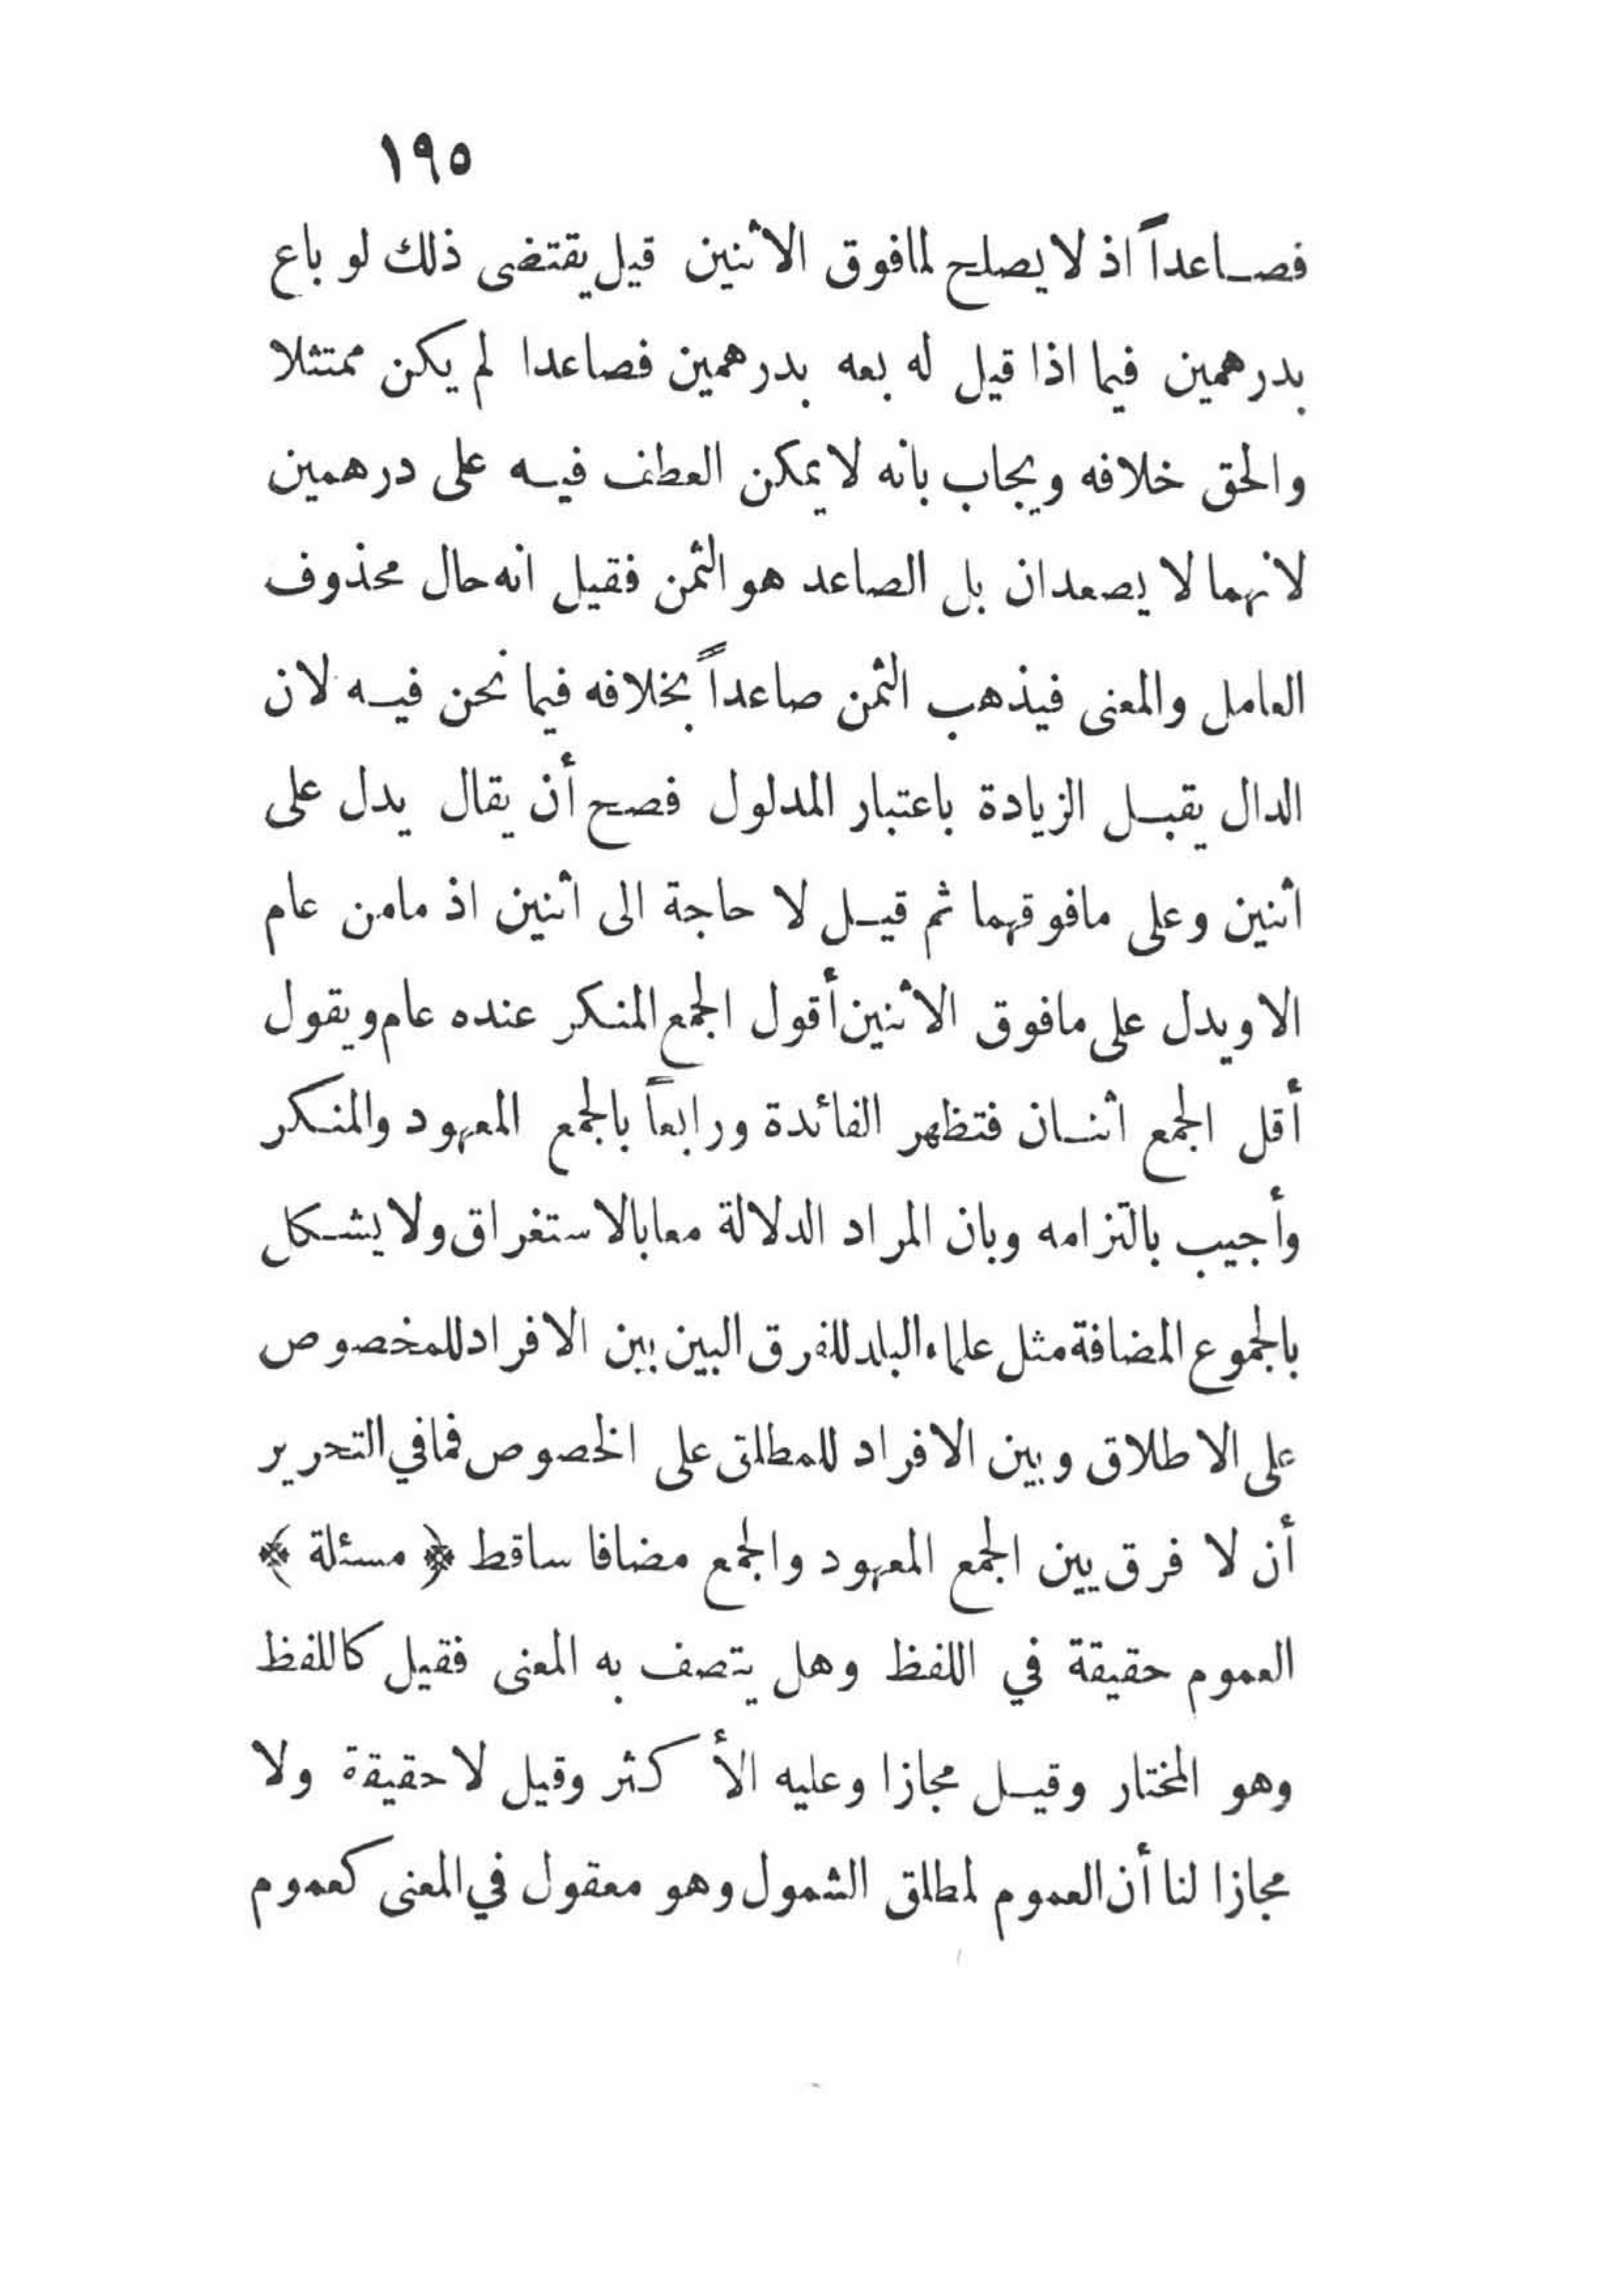 ١٩٥
فصاعداً اذ لا يصلح لمافوق الاثنين قيل يقتضى ذلك لو باع
بدرهمين فيما اذا قيل له بعه بدرهمين فصاعدا لم يكن ممتثلا
والحق خلافه ويجاب بانه لا يمكن العطف فيه على درهمين
لانهما لا يصعدان بل الصاعد هو الثمن فقيل انه حال محذوف
العامل والمعنى فيذهب الثمن صاعداً بخلافه فيما نحن فيه لان
الدال يقبل الزيادة باعتبار المدلول فصح أن يقال يدل على
اثنين وعلى مافوقهما ثم قيل لا حاجة الى اثنين اذ مامن عام
الا ويدل على مافوق الاثنين أقول الجمع المنكر عنده عام ويقول
أقل الجمع اثنان فتظهر الفائدة ورابعاً بالجمع المعهود والمنكر
وأجيب بالتزامه وبان المراد الدلالة معا بالاستغراق ولا يشكل
بالجموع المضافة مثل علماء البلد للفرق البين بين الافراد للمخصوص
على الاطلاق وبين الافراد للمطلق على الخصوص فمافي التحرير
أن لا فرق بين الجمع المعهود والجمع مضافا ساقط ﴿ مسئلة ﴾
العموم حقيقة في اللفظ وهل يتصف به المعنى فقيل كاللفظ
وهو المختار وقيل مجازا وعليه الأكثر وقيل لا حقيقة ولا
مجازا لنا أن العموم لمطلق الشمول وهو معقول في المعنى كعموم